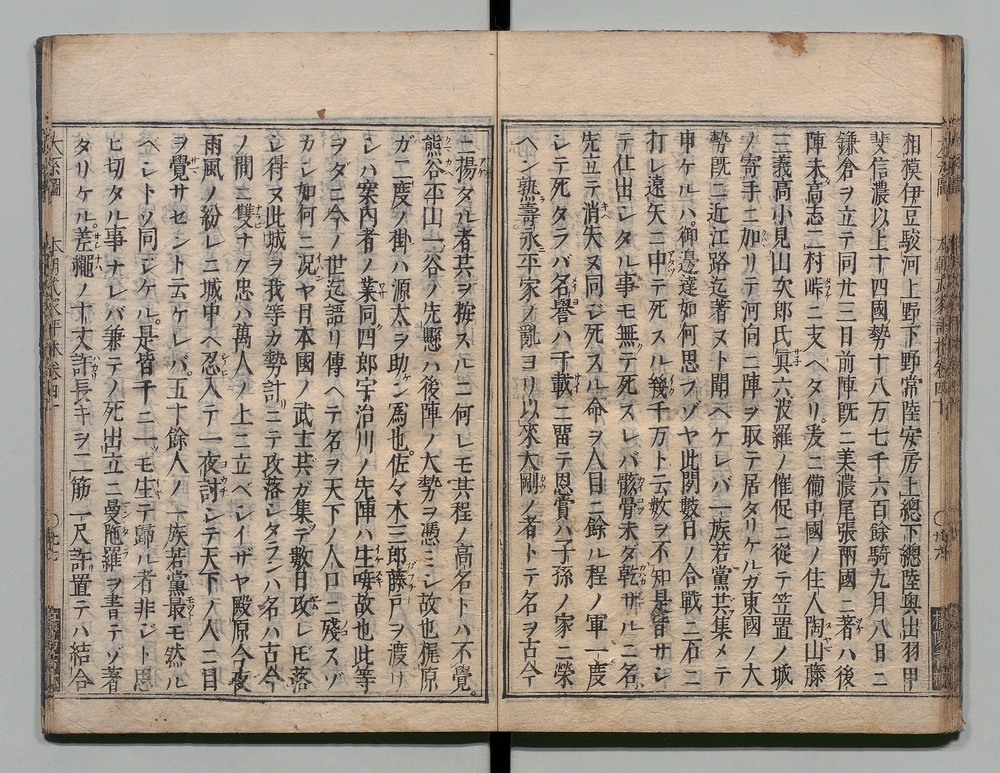 相模伊豆駿河上野下野常陸安房上總下總陸奥出羽甲
斐信濃以上十四國勢十八万七千六百餘騎九月八日ニ
鎌倉ヲ立テ同廿三日前陣既ニ美濃尾張兩國ニ著ハ後
陣未高志二村峠ニ支ヘタリ爰ニ備中國ノ住人陶山藤
三義高小見山次郎氏眞六波羅ノ催促ニ從テ笠置ノ城
ノ寄手ニ加リテ河向ニ陣ヲ取テ居タリケルガ東國ノ大
勢既ニ近江路迄著ヌト聞ヘケレバ一族若黨共集メテ
申ケルハ御邊達如何思フゾヤ此間數日ノ合戰ニ石ニ
打レ遠矢ニ中テ死スル幾千万ト云數ヲ不知是皆サレ
テ仕出シタル事モ無テ死スレバ骸骨未ダ乾サルルニ名
先立テ消失ヌ同ジ死スル命ヲ人目ニ餘ル程ノ軍一度
シテ死タラバ名譽ハ千載ニ畱テ恩賞ハ子孫ノ家ニ榮
ヘン熟壽永平家ノ亂ヨリ以來大剛ノ者トテ名ヲ古今
ニ揚タル者共ヲ按スルニ何レモ其程ノ高名トハ不覺
熊谷平山一谷ノ先懸ハ後陣ノ大勢ヲ憑ミシ故也梶原
ガ二度ノ掛ハ源太ヲ助ン爲也佐々木三郎藤戸ヲ渡リ
シハ案内者ノ業同四郎宇治川ノ先陣ハ生唼故也此等
ヲダニ今ノ世迄語リ傳ヘテ名ヲ天下ノ人口ニ殘スゾ
カシ如何ニ況ヤ日本國ノ武士共ガ集テ數日攻レ𪜈落
シ得ヌ此城ヲ我等カ勢計ニテ攻落シタランハ名ハ古今
ノ間ニ雙ナク忠ハ萬人ノ上ニ立ベシイザヤ殿原今夜
雨風ノ紛レニ城中ヘ忍入テ一夜討シテ天下ノ人ニ目
ヲ覺サセント云ケレバ五十餘人ノ一族若黨最モ然ル
ベシトゾ同ジケル是皆千ニ一ツモ生テ歸ル者非ジト思
ヒ切タル事ナレバ兼テノ死出立ニ曼陀羅ヲ書テゾ著
タリケル差繩ノ十丈許長キヲ二筋一尺許置テハ結合